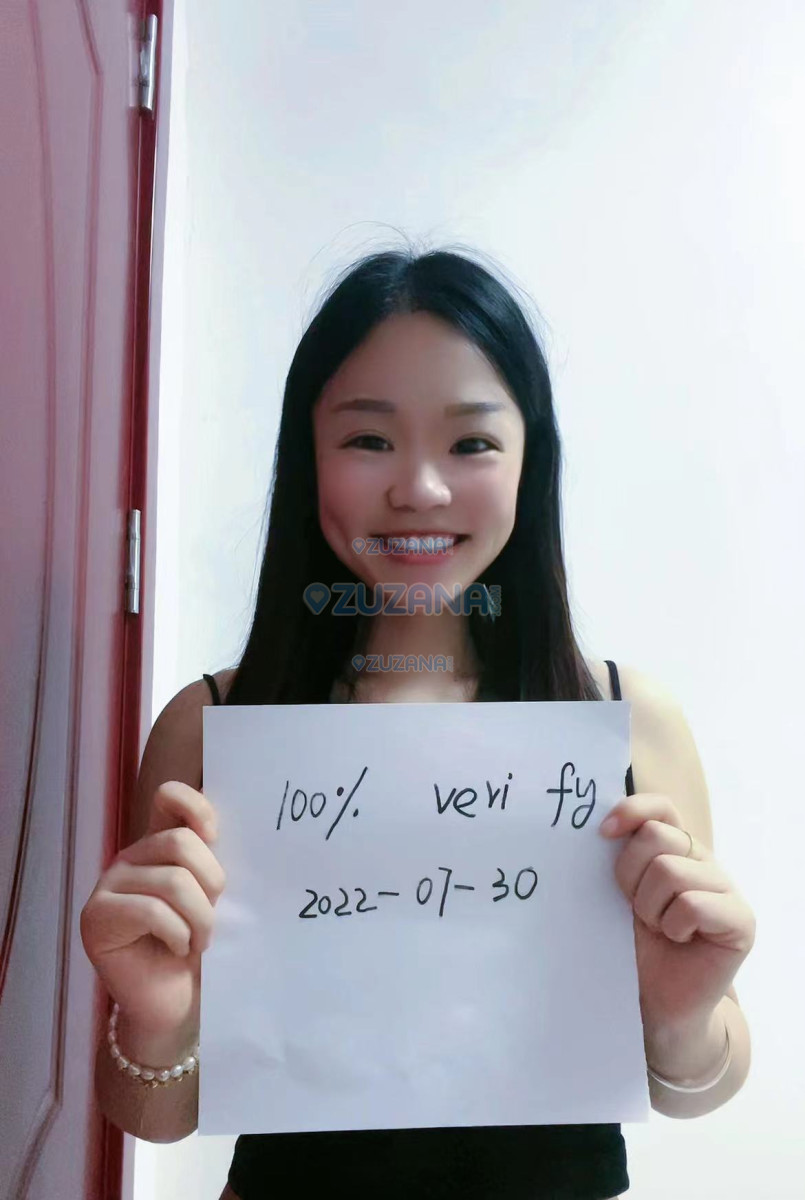 ZUZANA
ZUZANA
ZUZANA
100% verify
2022-07-30